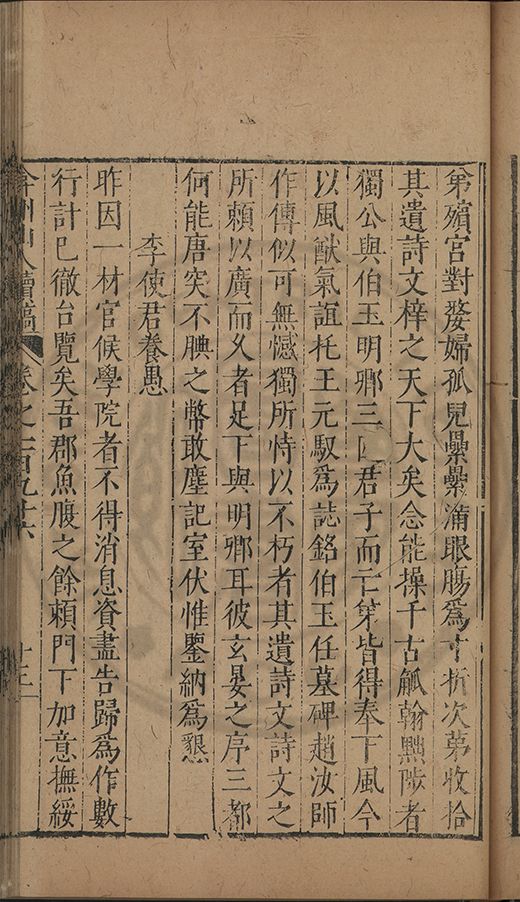 弟殯宮對嫠婦孤兒纍纍滿眼腸爲寸折次第收拾
其遺詩文梓之天下大矣念能操千古觚翰黜陟者
獨公與伯玉明卿三四君子而亡弟皆得奉下風今
以風猷氣誼托王元馭爲誌銘伯玉任墓碑趙汝師
作傳似可無憾獨所恃以不朽者其遺詩文詩文之
所賴以廣而久者足下與明卿耳彼玄晏之序三都
何能唐突不腆之幣敢塵記室伏惟鑒納爲懇
李使君養愚
昨因一材官候學院者不得消息資盡告歸爲作數
行計已徹台覽矣吾郡魚腹之餘頼門下加意撫綏
弇州山人續稿 卷之一百九十六 十三